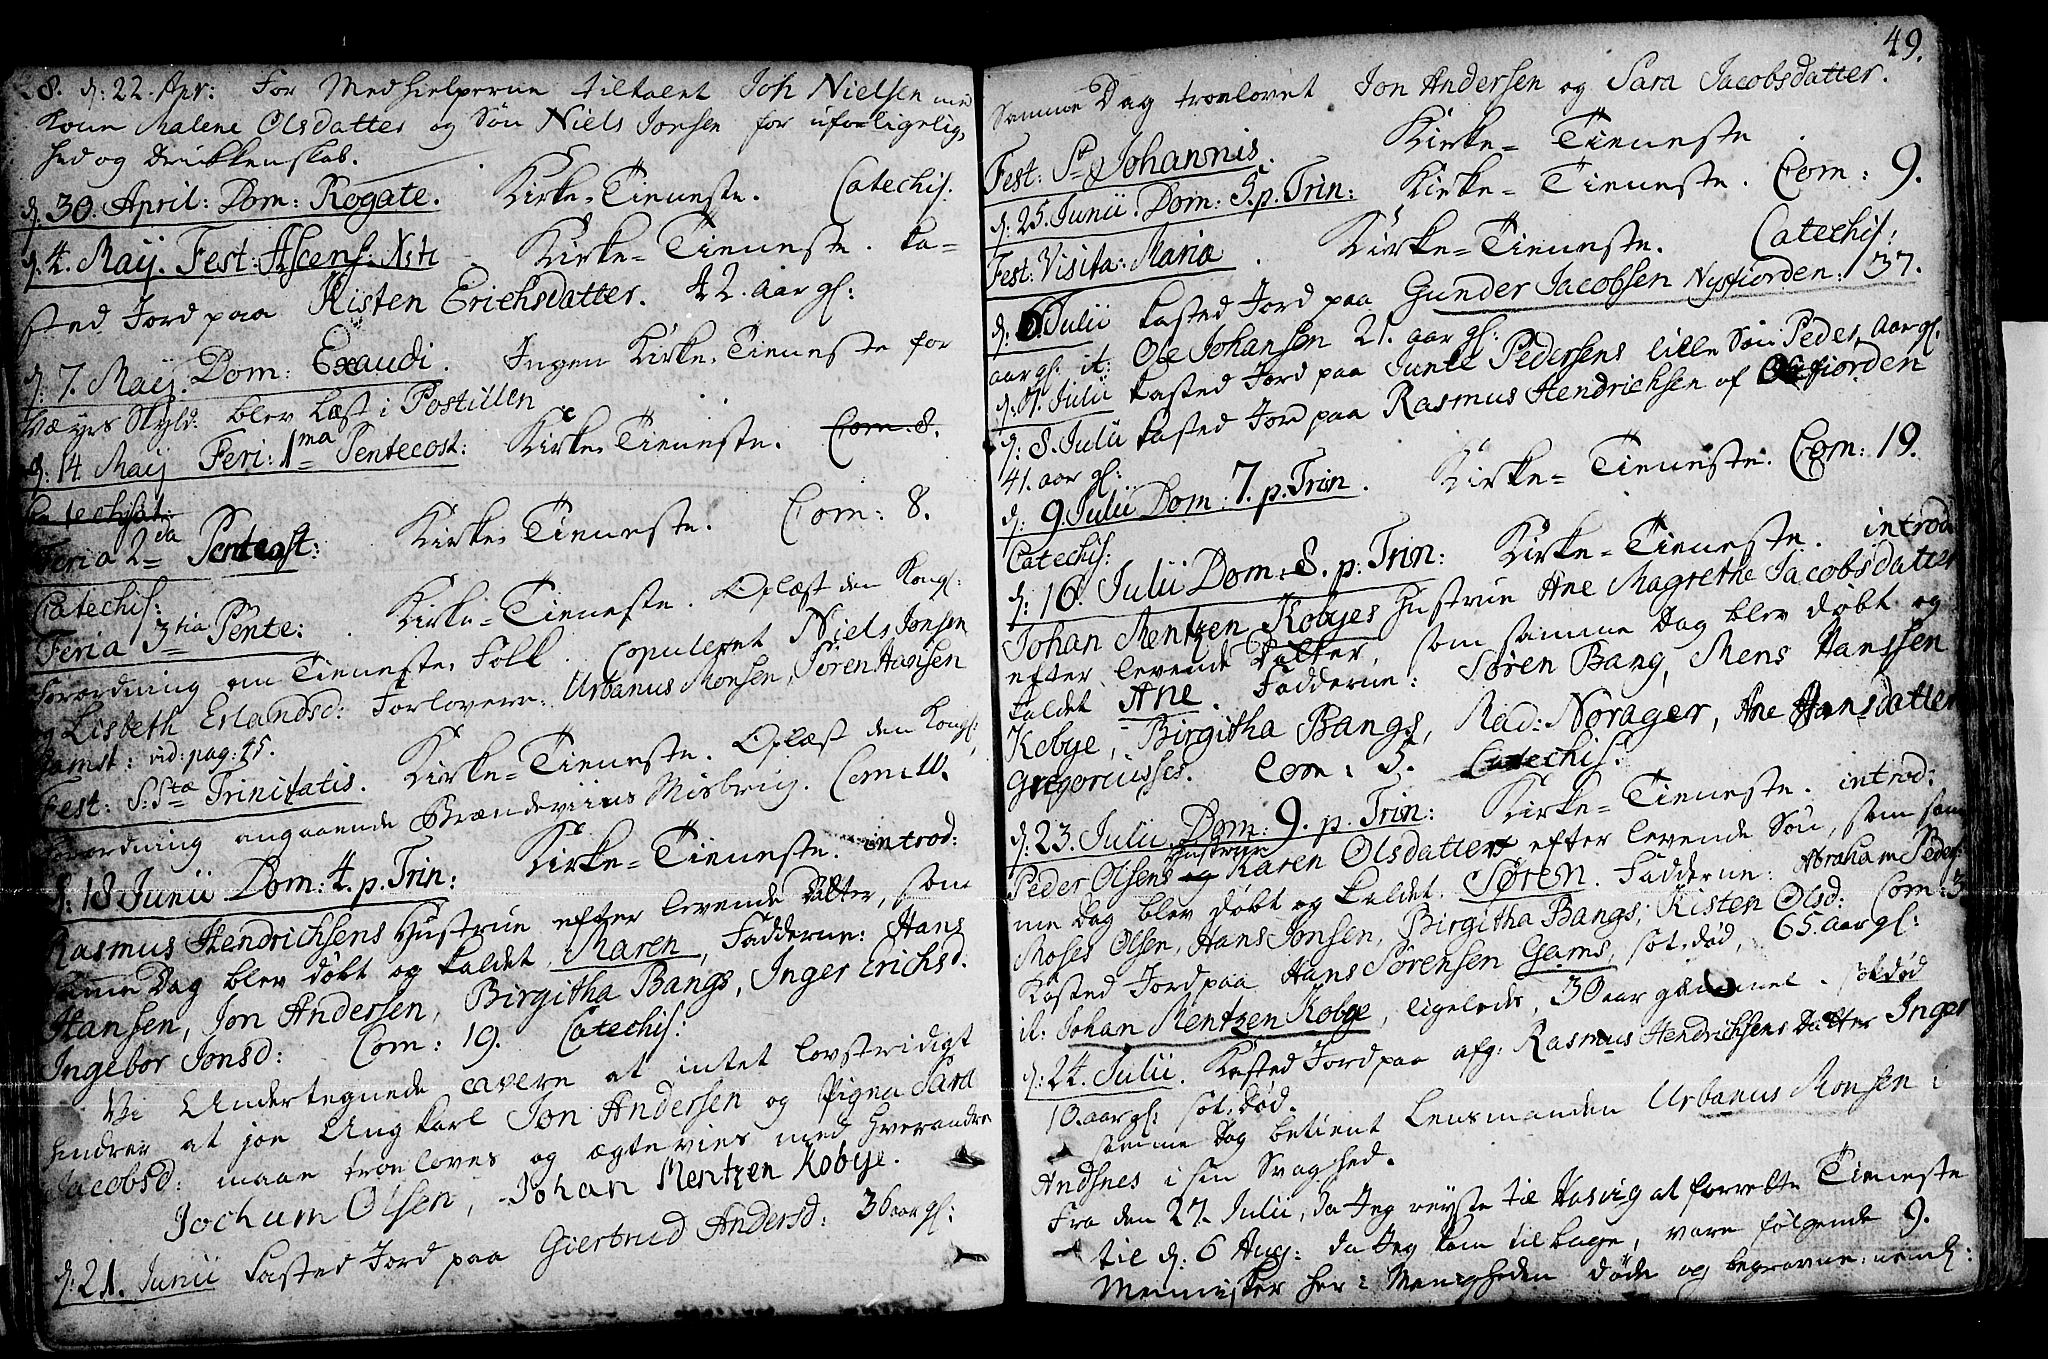 28. d: 22. Apr: for Medhielperne tiltalt Joh Nielsen med
Kone Malene Olsdatter og Søn Niels Jonsen for uforligelig,
hed og drukkenskab.
d. 30. April: Dom: Rogate. Kirke-Tieneste. Catechis:
d. 4. Maij. Fest: Ascens: Xsti. Kirke-Tieneste. Ka=
sted Jord paa Kisten Erichsdatter. 42. aar gl:
d. 7. Maij Dom: Exaudi. Ingen Kirke-Tieneste for
Væyrs Skyld: blev læst i Postillen
d. 14 Maij Feri: 1ma Pentecost: Kirke-Tieneste. Com: 8.
Catechisat:
Feria 2da Pentecost: Kirke-Tieneste. Com: 8.
Catechis:
Feria 3tia Pente: Kirke-Tieneste. Oplæst den Kongl:
Forordning om Tieneste-Folk. Copuleret Niels Jonsen
og Lisbeth Erlandsd: Forlovere: Urbanus Monsen, Søren Hansen
Gamst: vid: pag: 45.
Fest: S:Stæ Trinitatis. Kirke-Tieneste. Oplæst den Kongl:
Forordning angaaende Brændeviins Misbrug. Com: 10.
d: 18 Junii Dom: 4. p. Trin: Kirke-Tieneste. introd:
Rasmus Hendrichsens Hustrue efter levende Datter, som
samme Dag blev døbt og kaldet Maren, Fadderne: Hans
Hansen, Jon Andersen, Birgitha Bangs, Inger Erichsd.
Ingebor Jonsd: Com: 19. Catechis:
Vi Undertegnede cavere at intet lovstridigt
hindrer at jo Ung karl Jon Andersen og Pigen Sara
Jacobsd: maae troeloves og ægtevies med hverandre
Jochum Olsen, Johan Mentzen Kobye.
d: 21. Junii kasted Jord paa Giertrud Andersd: 36 aar gl:
49.
Samme Dag troelovet Jon Andersen og Sara Jacobsdatter.
Fest: St Johannis. Kirke-Tieneste
d: 25. Junii. Dom: 5. p. Trin: Kirke-Tieneste. Com: 9.
Fest: Visita: Mariæ. Kirke-Tieneste. Catechis:
d: 6. Julii kasted Jord paa Gunder Jacobsen Nysfiorden: 37.
aar gl: it: Ole Johansen 21. aar gl:
d. 7. Julii kasted Jord paa Junte Pedersens lille Søn Peder, aar gl.
d: 8. Julii kasted Jord paa Rasmus Hendrichsen af fiorden
41. aar gl:
d: 9 Julii Dom: 7. p. Trin. Kirke-Tieneste. Com: 19.
Catechis:
d: 16. Julii Dom: 8. p: Trin: Kirke-Tieneste. introd
Johan Mentzen Kobyes Hustrue Ane Magrethe Jacobsdatter
efter levende Datter, som samme Dag blev døbt og
kaldet Ane. Fadderne: Søren Bang, Mens Hanssen
Kobye, Birgitha Bangs, Mad: Norager, Ane Hansdatter
Gregoriusses. Com: 5. Catechis:
d: 23. Julii. Dom: 9. p. Trin: Kirke-Tieneste. introd:
Peder Olsens Hustrue Karen Olsdatter efter levende Søn, som sam
me Dag blev døbt og kaldet Søren. Fadderne: Abraham Peders
Moses Olsen, Hans Jonsen, Birgitha Bangs, Kisten Olsd: Com: 3
Kasted Jord paa Hans Sørensen Gams, sot. død, 65. aar gl:
it: Johan Mentzen Kobye, ligeleds, 30 aar gammel. sotdød
d: 24. Julii. Kasted Jord paa afg: Rasmus Hendrichsens Datter Inger
10. aar gl: sot: død.
Samme Dag betient Lensmanden Urbanus Monsen i
Andsnes i sin Svaghed.
Fra den 27. Julii, da Jeg reyste til Hasvig at forrette Tieneste
til d: 6 Aug: da Jeg kom tilbage, vare følgende 9.
Mennisker her i Menigheden døde og begravne: neml: